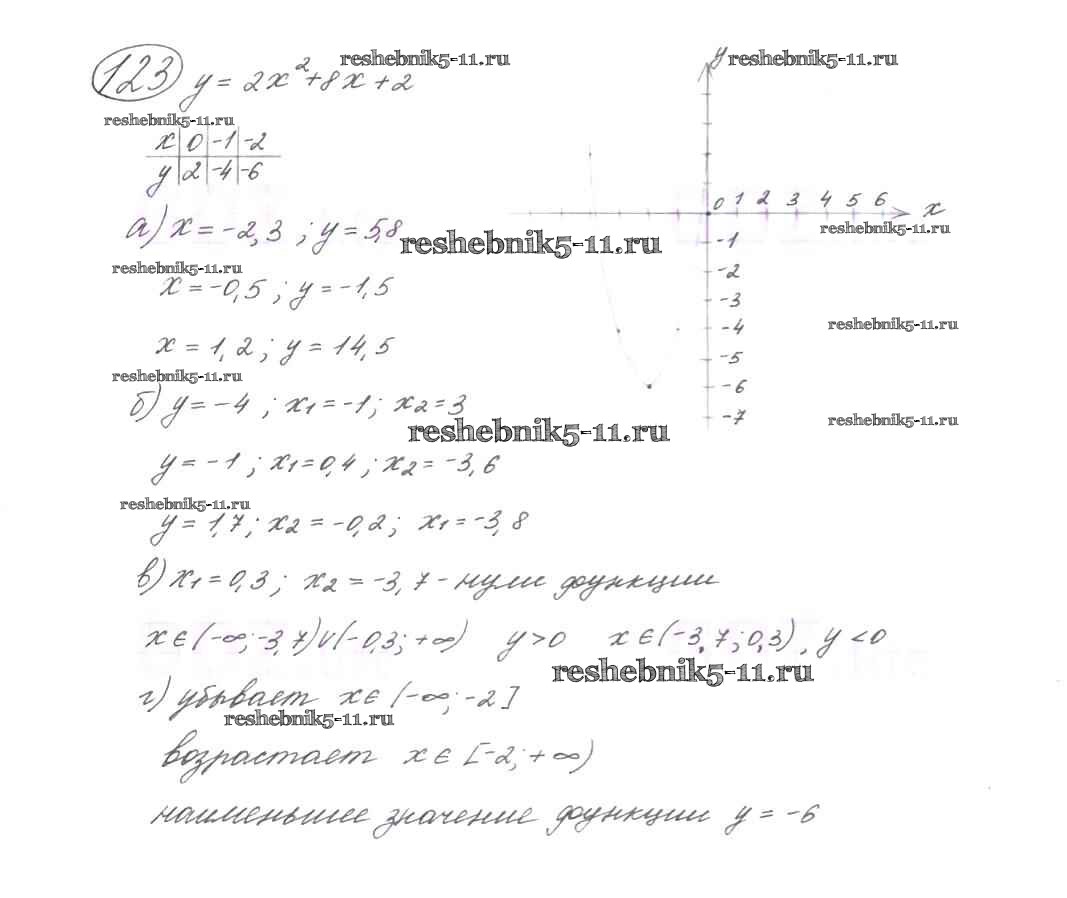 reshebnik5-11.ru
y reshebnik5-11.ru
123 y = 2x²+8x+2
reshebnik5-11.ru
x | 0 | -1 | -2
y | 2 | -4 | -6
0 1 2 3 4 5 6 x
а) x = -2,3 ; y = 5,8
reshebnik5-11.ru
reshebnik5-11.ru
-1
reshebnik5-11.ru
-2
x = -0,5 ; y = -1,5
-3
reshebnik5-11.ru
-4
x = 1,2 ; y = 14,5
-5
reshebnik5-11.ru
-6
б) y = -4 ; x1 = -1 ; x2 = 3
-7
reshebnik5-11.ru
reshebnik5-11.ru
y = -1 ; x1 = 0,4 ; x2 = -3,6
reshebnik5-11.ru
y = 1,7 ; x2 = -0,2 ; x1 = -3,8
в) x1 = 0,3 ; x2 = -3,7 - нули функции
x ∈ (-∞; -3,7) ∪ (-0,3; +∞) y > 0 x ∈ (-3,7; 0,3), y < 0
reshebnik5-11.ru
г) убывает x ∈ (-∞; -2]
reshebnik5-11.ru
возрастает x ∈ [-2; +∞)
наименьшее значение функции y = -6